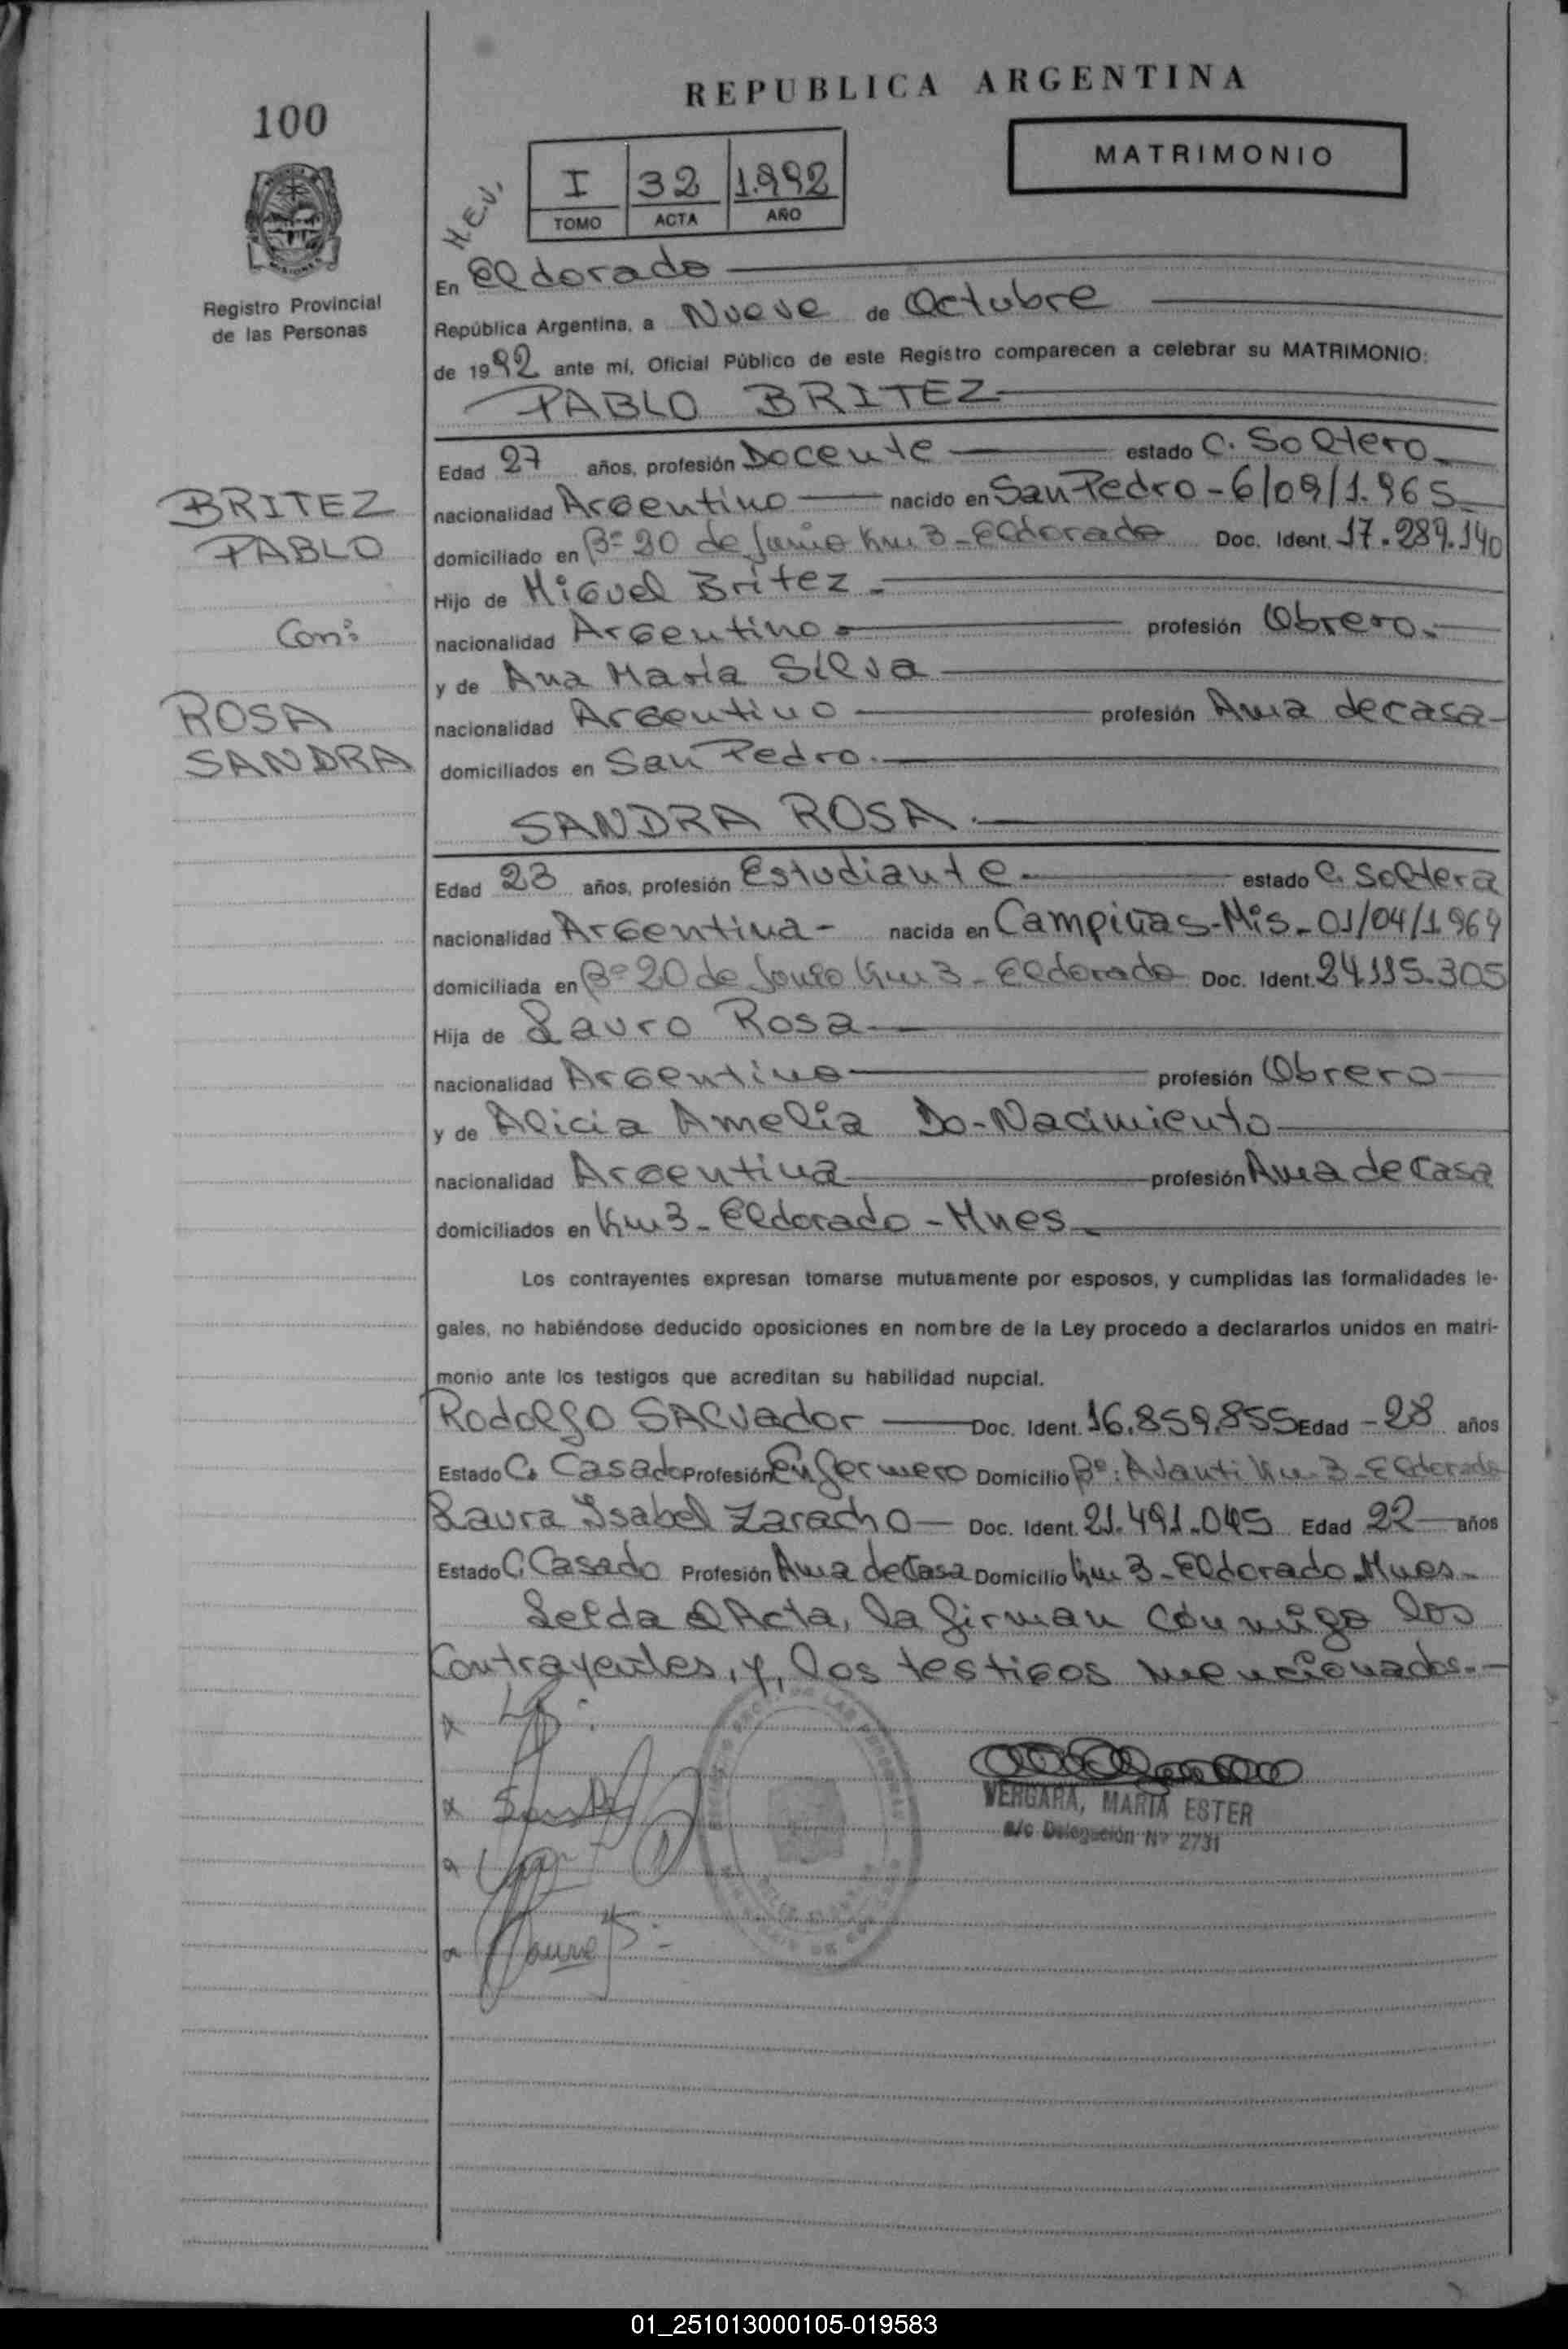 REPUBLICA ARGENTINA
100
MATRIMONIO
I 32 1.992
TOMO ACTA AÑO
M.E.V.
Registro Provincial
de las Personas
En Eldorado
República Argentina, a Nueve de Octubre
de 1992 ante mí, Oficial Público de este Registro comparecen a celebrar su MATRIMONIO:
PABLO BRITEZ
Edad 27 años, profesión Docente estado C. Soltero
BRITEZ
PABLO
Con:
ROSA
SANDRA
nacionalidad Argentino nacido en San Pedro - 6/09/1.965
domiciliado en Bº 20 de Junio Km 3 - Eldorado Doc. Ident. 17.289.140
Hijo de Miguel Britez
nacionalidad Argentino profesión Obrero
y de Ana María Silva
nacionalidad Argentino profesión Ama de casa
domiciliados en San Pedro.
SANDRA ROSA.
Edad 23 años, profesión Estudiante estado C. Soltera
nacionalidad Argentina - nacida en Campinas - Mis - 01/04/1969
domiciliada en Bº 20 de Junio Km 3 - Eldorado Doc. Ident. 24.115.305
Hija de Lauro Rosa
nacionalidad Argentino profesión Obrero
y de Alicia Amelia Do-Nacimiento
nacionalidad Argentina profesión Ama de Casa
domiciliados en Km 3 - Eldorado - Mnes
Los contrayentes expresan tomarse mutuamente por esposos, y cumplidas las formalidades le-
gales, no habiéndose deducido oposiciones en nombre de la Ley procedo a declararlos unidos en matri-
monio ante los testigos que acreditan su habilidad nupcial.
Rodolfo Salvador Doc. Ident. 16.859.855 Edad - 28 años
Estado C. Casado Profesión Enfermero Domicilio Bº: Avanti Km. 3 - Eldorado
Laura Isabel Zaracho Doc. Ident. 21.491.045 Edad 22 años
Estado C. Casado Profesión Ama de Casa Domicilio Km 3 - Eldorado. Mnes -
Leída el Acta, la firman conmigo los
Contrayentes, y, los testigos mencionados. -
VERGARA, MARIA ESTER
a/c Delegación Nº 2731
01_251013000105-019583